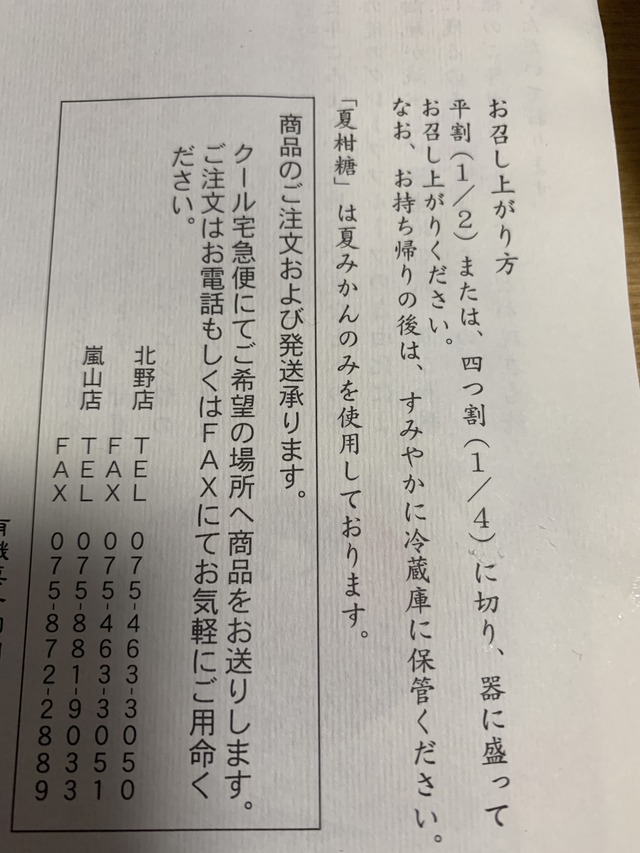 お召し上がり方
平割(1/2)または、四つ割(1/4)に切り、器に盛って
お召し上がりください。
なお、お持ち帰りの後は、すみやかに冷蔵庫に保管ください。
「夏柑糖」は夏みかんのみを使用しております。
商品のご注文および発送承ります。
クール宅急便にてご希望の場所へ商品をお送りします。
ご注文はお電話もしくはFAXにてお気軽にご用命く
ださい。
北野店 TEL 075-463-3050
FAX 075-463-3051
嵐山店 TEL 075-881-9033
FAX 075-872-2889